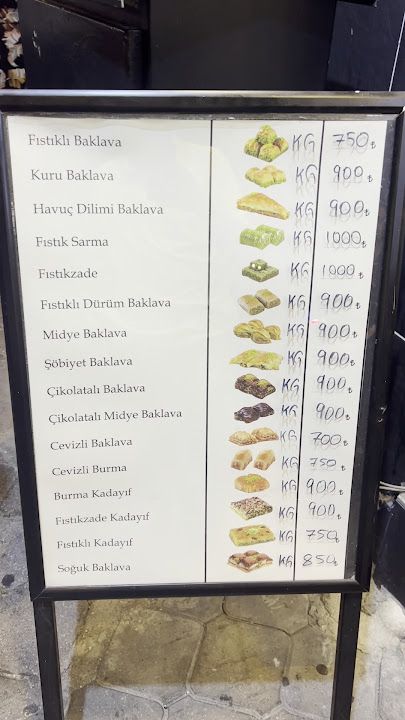 Fıstıklı Baklava KG 750₺
Kuru Baklava KG 900₺
Havuç Dilimi Baklava KG 900₺
Fıstık Sarma KG 1000₺
Fıstıkzade KG 1000₺
Fıstıklı Dürüm Baklava KG 900₺
Midye Baklava KG 900₺
Şöbiyet Baklava KG 900₺
Çikolatalı Baklava KG 900₺
Çikolatalı Midye Baklava KG 900₺
Cevizli Baklava KG 700₺
Cevizli Burma KG 750₺
Burma Kadayıf KG 900₺
Fıstıkzade Kadayıf KG 900₺
Fıstıklı Kadayıf KG 750₺
Soğuk Baklava KG 850₺